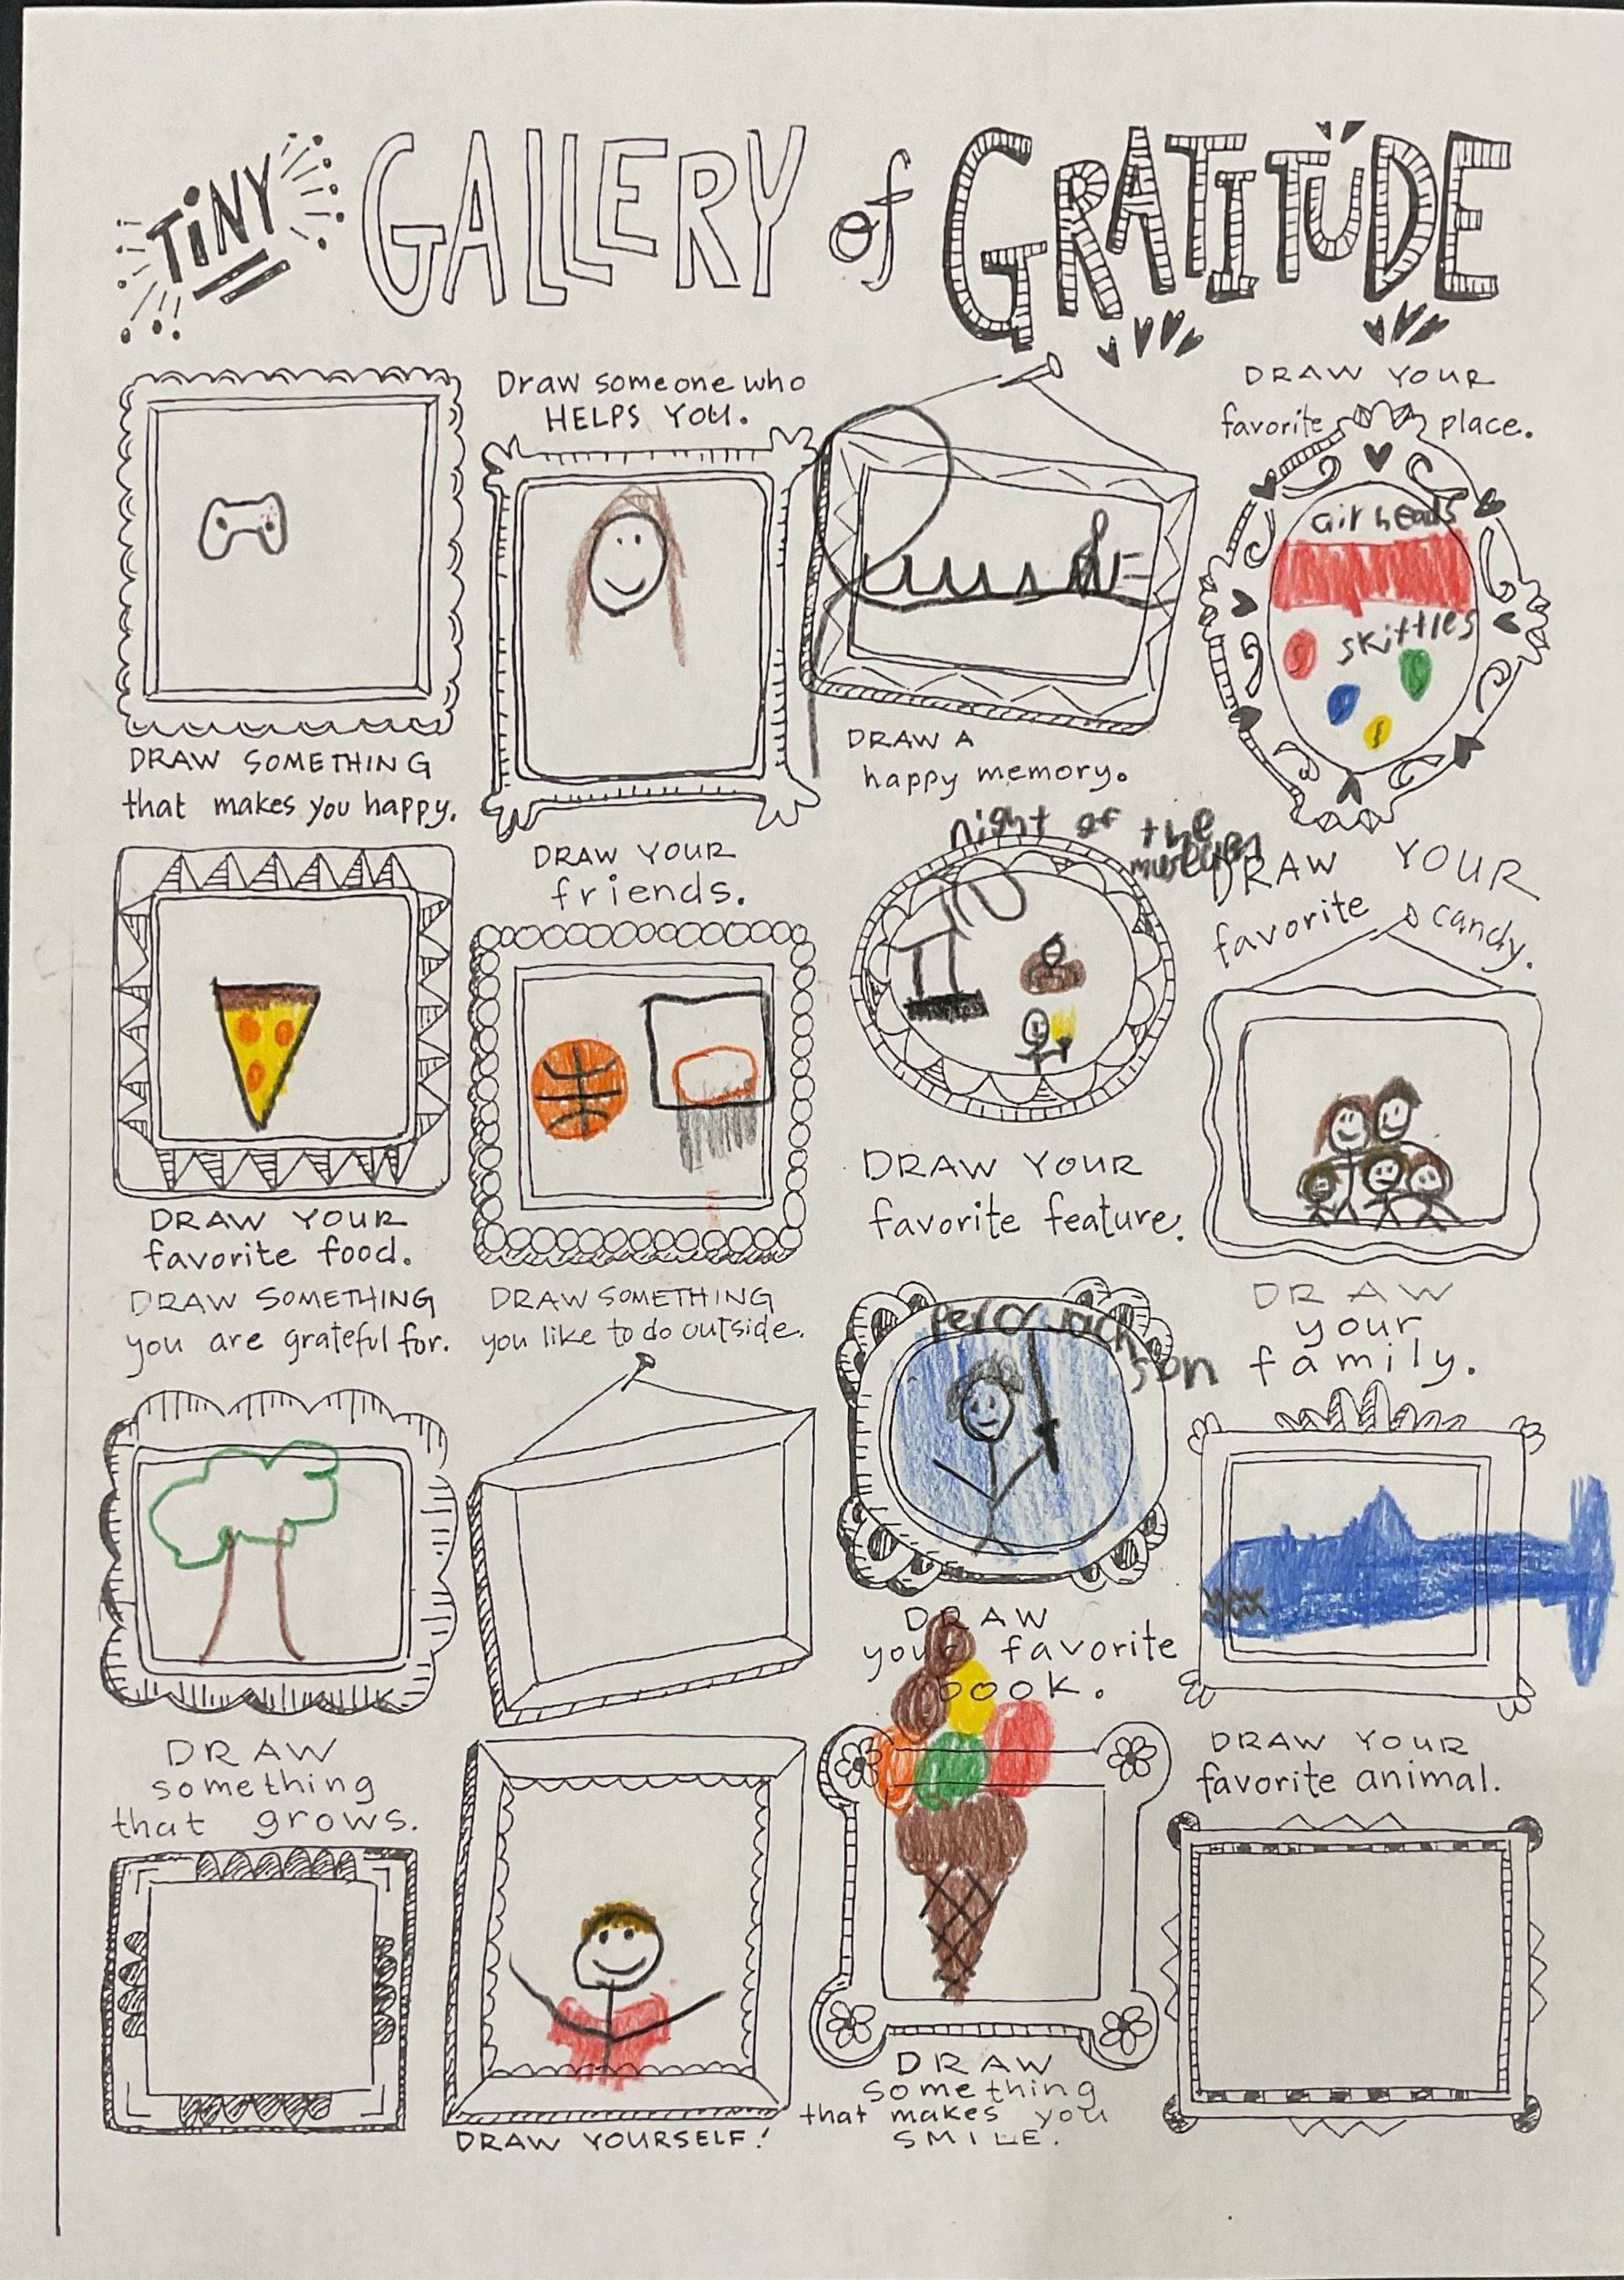 TiNY GALLERY of GRATITUDE
Draw someone who
HELPS YOU.
DRAW YOUR
favorite place.
air heads
skittles
DRAW SOMETHING
that makes you happy.
DRAW A
happy memory.
DRAW YOUR
friends.
night of the
DRAW YOUR
favorite candy.
DRAW YOUR
favorite food.
DRAW YOUR
favorite feature.
DRAW SOMETHING
you are grateful for.
DRAW SOMETHING
you like to do outside.
DRAW
your
family.
DRAW
your favorite
book.
DRAW
something
that grows.
DRAW YOUR
favorite animal.
DRAW YOURSELF!
DRAW
something
that makes you
SMILE.